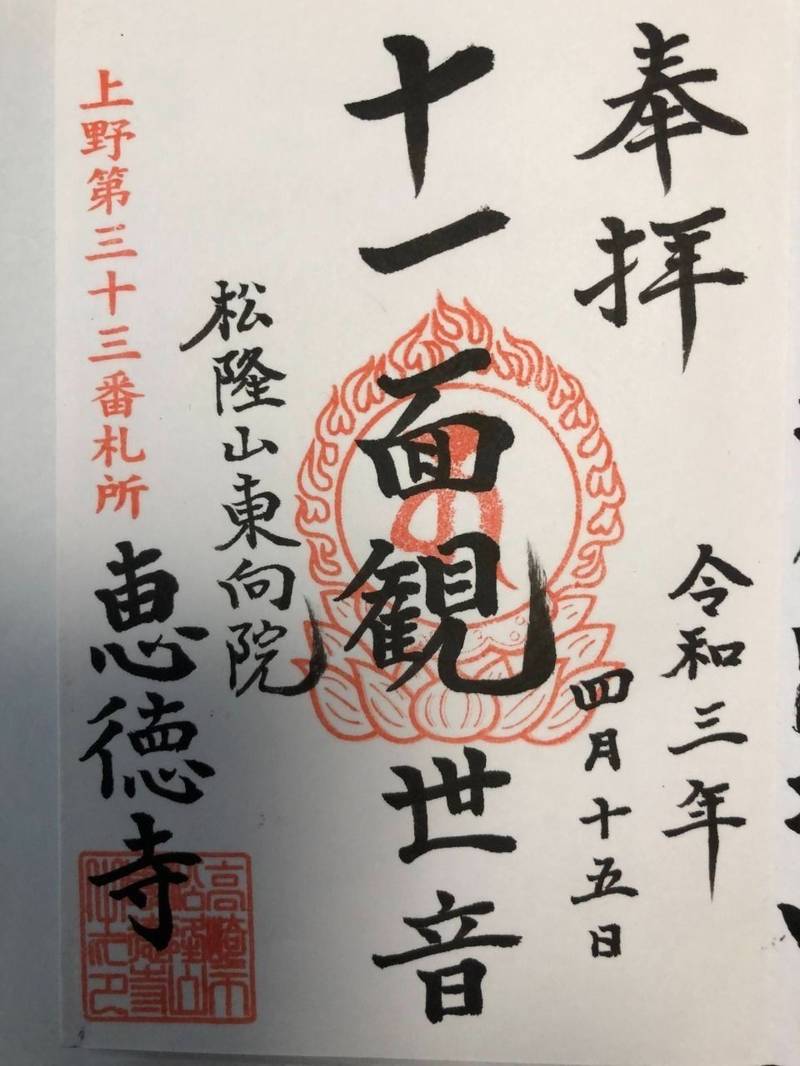 奉拝
令和三年
四月十五日
十一面観世音
松隆山東向院
上野第三十三番札所
恵徳寺